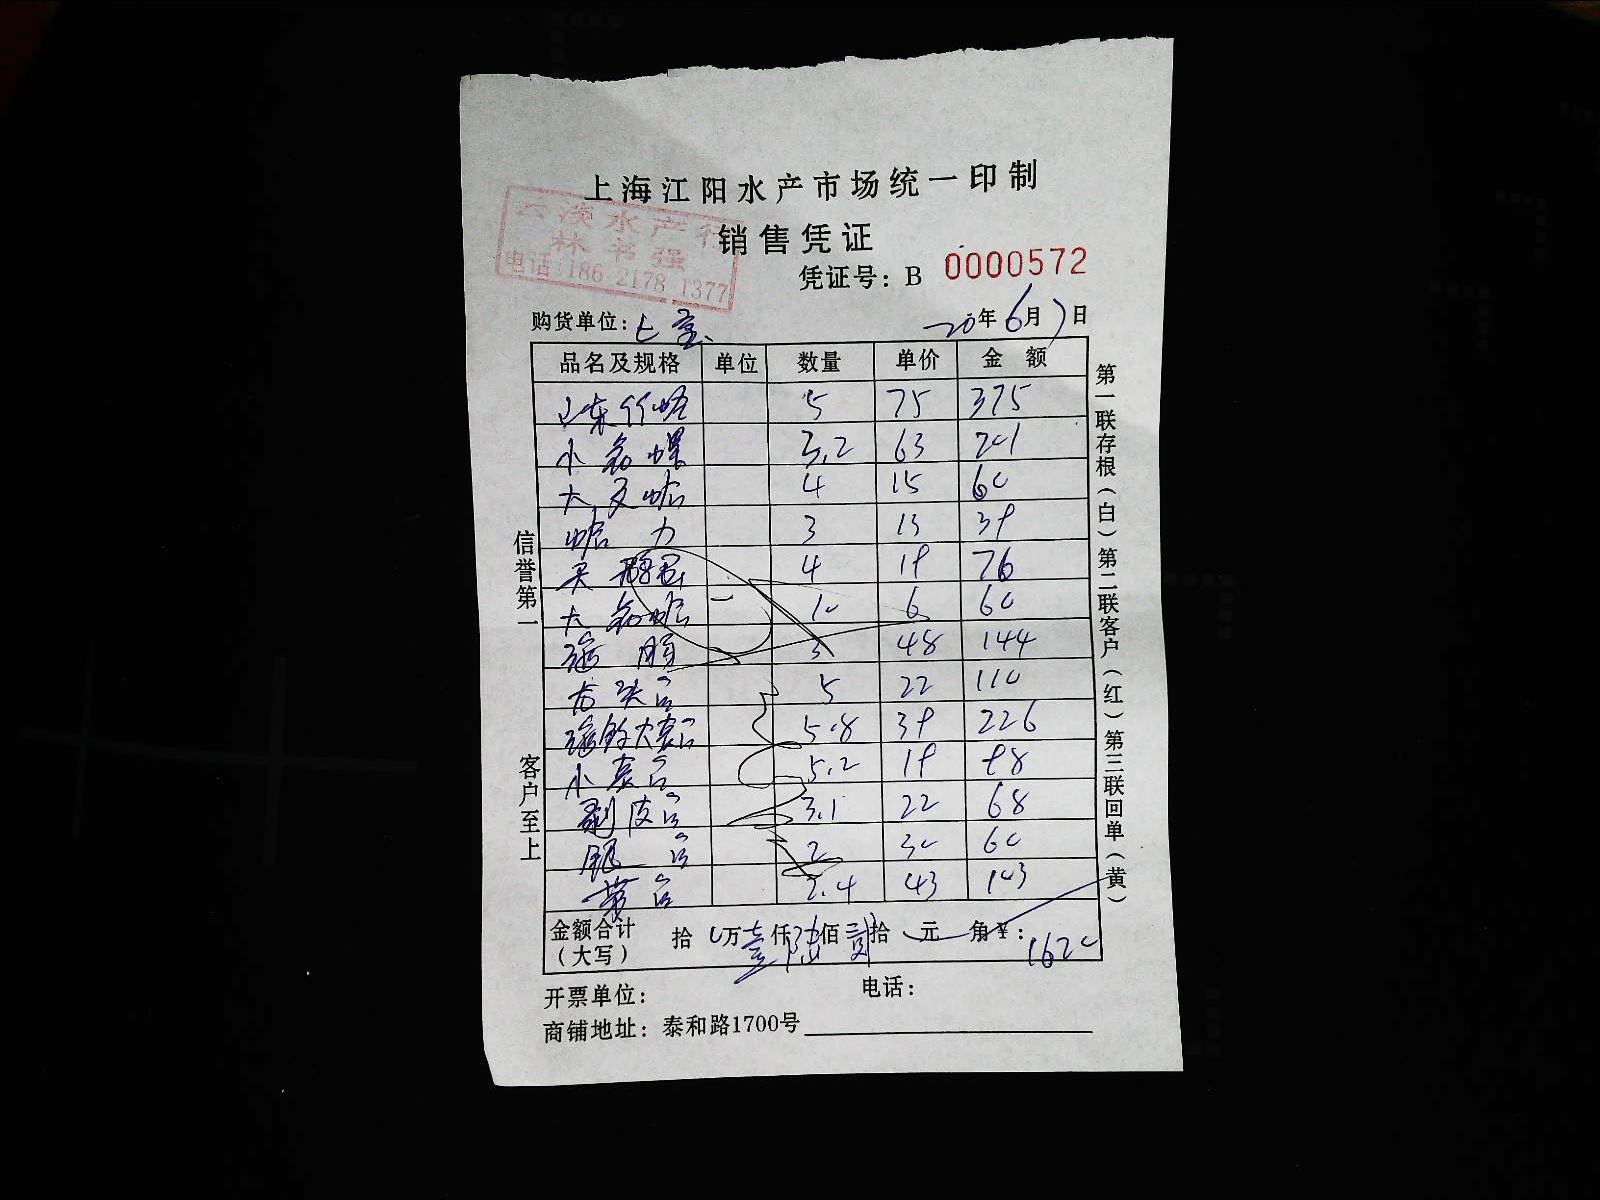 上海江阳水产市场统一印制
水产行
林书强
电话:186 2178 1377
销售凭证
凭证号: B 0000572
购货单位:七宝
20年6月7日
品名及规格 单位 数量 单价 金额
山东竹蛏 5 75 375
小 螺 3.2 63 201
大 蛤 4 15 60
蛤 力 3 13 39
4 19 76
大 蛤 10 6 60
3 48 144
5 22 110
5.8 39 226
小 5.2 19 98
剥皮 3.1 22 68
银 2 30 60
2.4 43 103
金额合计
(大写) 拾 万壹仟陆佰贰拾 元 角 ¥: 1620
开票单位: 电话:
商铺地址: 泰和路1700号
信誉第一
客户至上
第一联存根(白)第二联客户(红)第三联回单(黄)